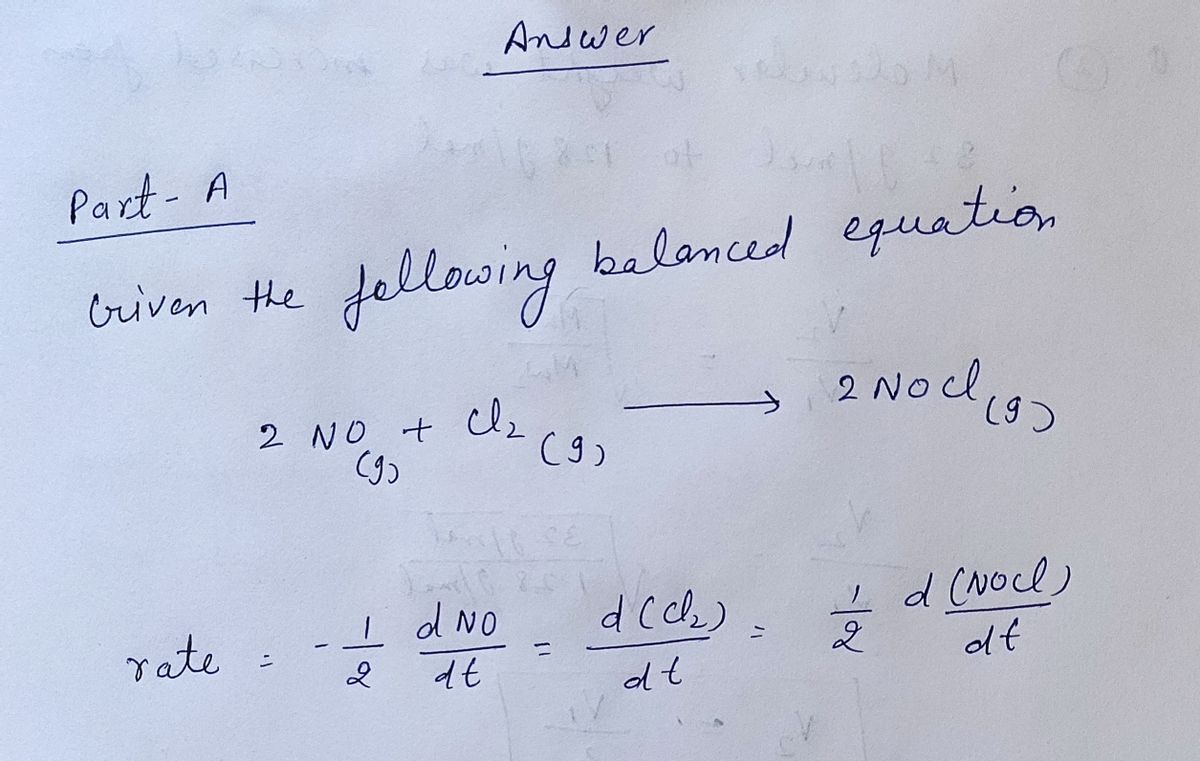 Answer
Part - A
Given the following balanced equation
2 NO(g) + Cl₂(g) ⟶ 2 NOCl(g)
rate = - 1/2 d NO/dt = d(Cl₂)/dt = 1/2 d(NOCl)/dt